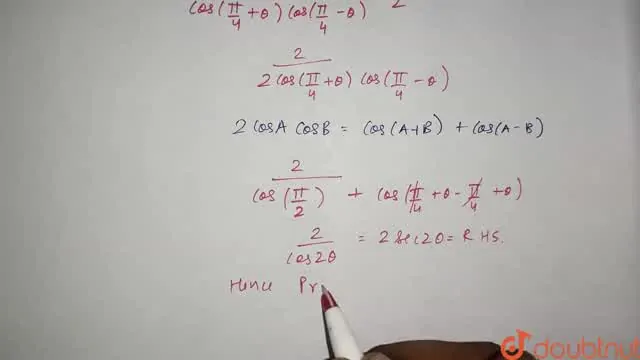 cos(π/4 + θ) cos(π/4 - θ) 2
2
2 cos(π/4 + θ) cos(π/4 - θ)
2 cosA cosB = cos(A+B) + cos(A-B)
2
cos(π/2) + cos(π/4 + θ - π/4 + θ)
2/cos2θ = 2 sec2θ = RHS.
Hence Pr
doubtnut